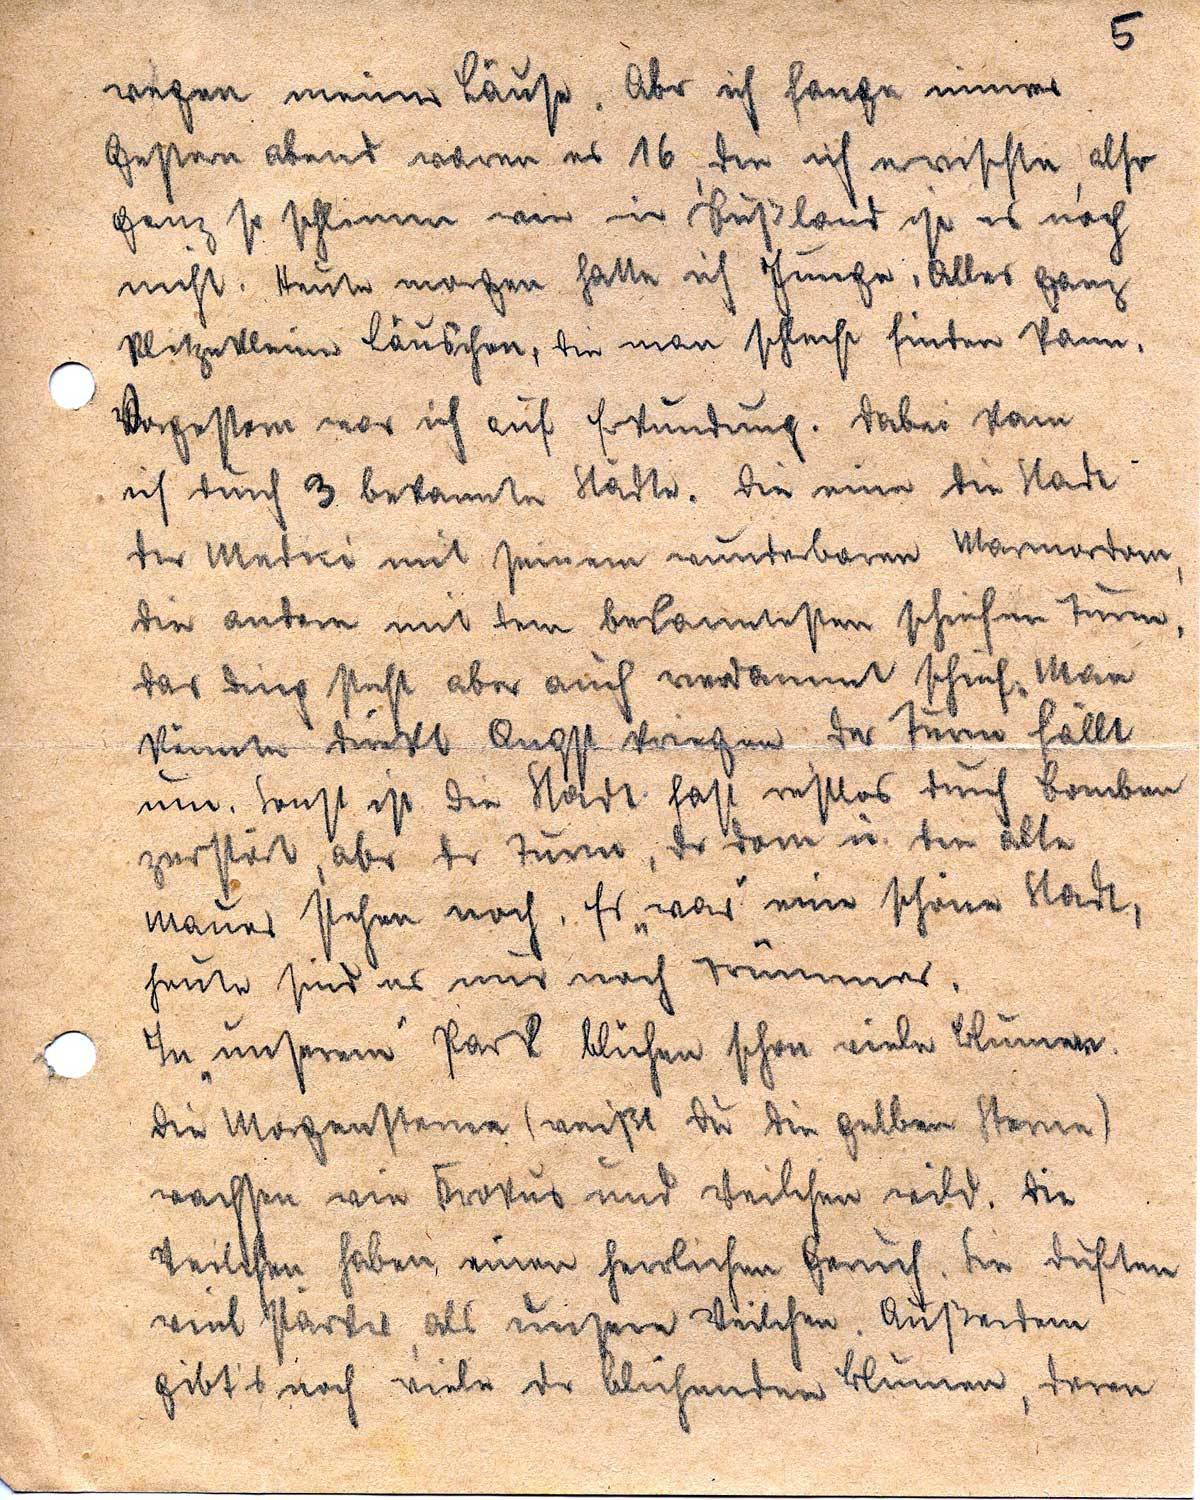 5
wegen meiner Läuse. Abr ich fange immer
Gestern abend waren es 16, die ich erwischte, also
ganz so schlimm wie in Rußland ist es noch
nicht. Heute morgen hatte ich Junge. Alles ganz
klitzekleine Läuschen, die man schlecht finden kann.
Vorgestern war ich auf Erkundung. Dabei kam
ich durch 3 bekannte Städte. Die eine die Stadt
der Medici mit seinem wunderbaren Marmordom,
die andere mit dem bekanntesten schiefen Turm,
das Ding steht aber auch verdammt schief. Man
könnte direkt Angst kriegen der Turm fällt
um. Sonst ist die Stadt fast restlos durch Bomben
zerstört, abr dr Turm, dr Dom u. die alte
Mauer stehen noch. Es „war" eine schöne Stadt,
heute sind es nur noch Trümmer.
In „unserem" Park blühen schon viele Blumen.
Die Morgensterne (weißt Du die gelben Sterne)
wachsen wie Krokus und Veilchen wild. Die
Veilchen haben einen herrlichen Geruch. Sie duften
viel stärker als unsere Veilchen. Außerdem
gibt's noch viele dr blühenden Blumen, deren